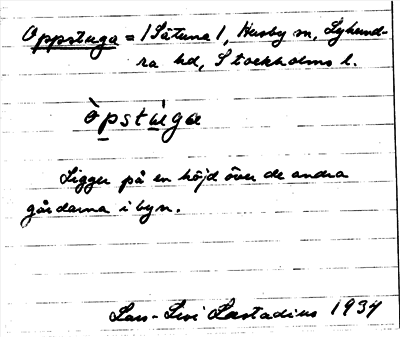 Oppstuga = /Såtuna/, Husby sn, Lyhund-
ra hd, Stockholms l.
òpstùga
Ligger på en höjd över de andra
gårdarna i byn.
Lars-Levi Læstadius 1934